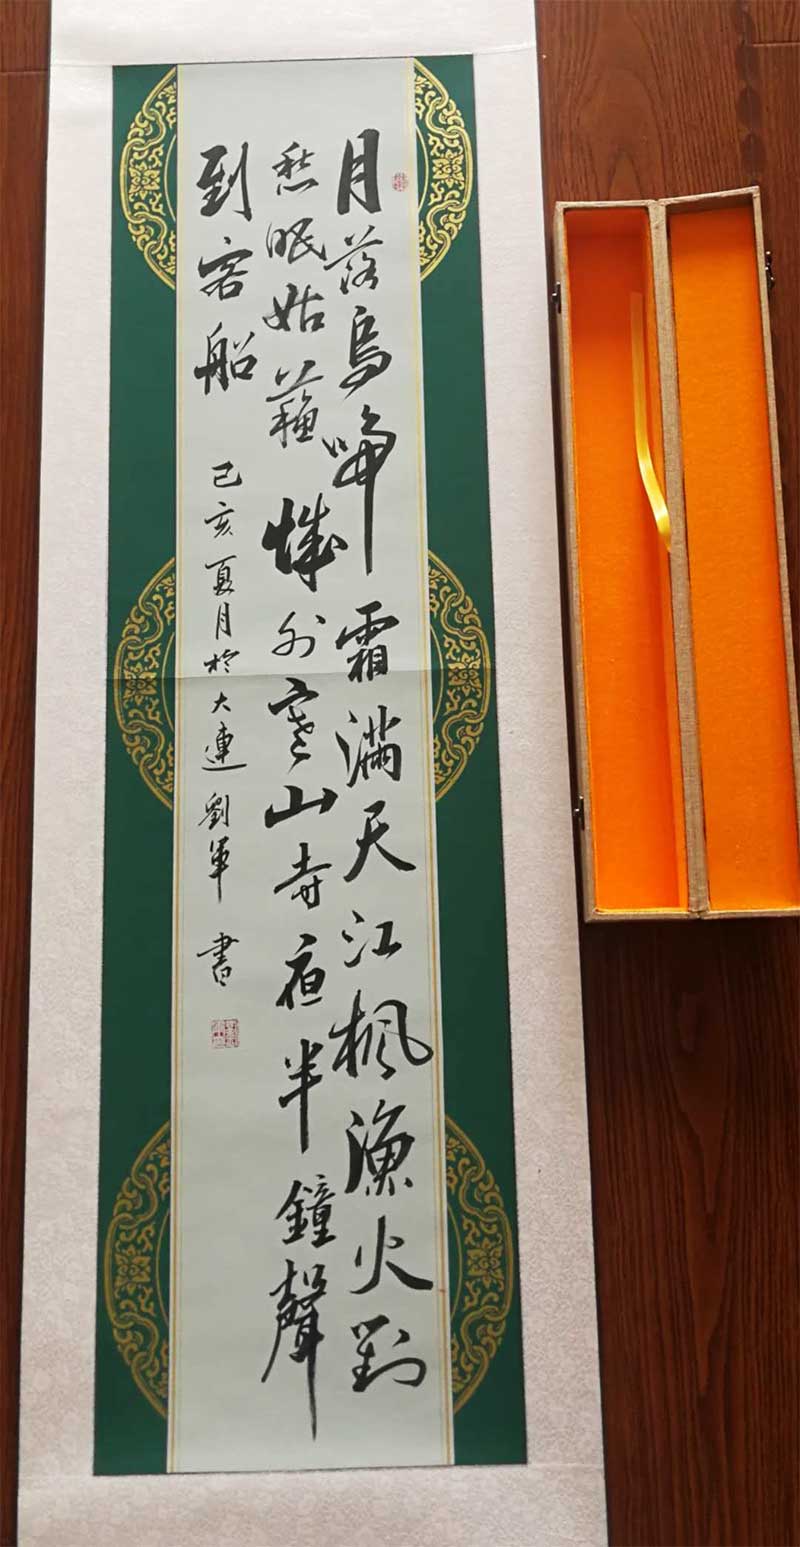 月落烏啼霜滿天江楓漁火對
愁眠姑蘓城外寒山寺夜半鐘聲
到客船
己亥夏月於大連劉軍書